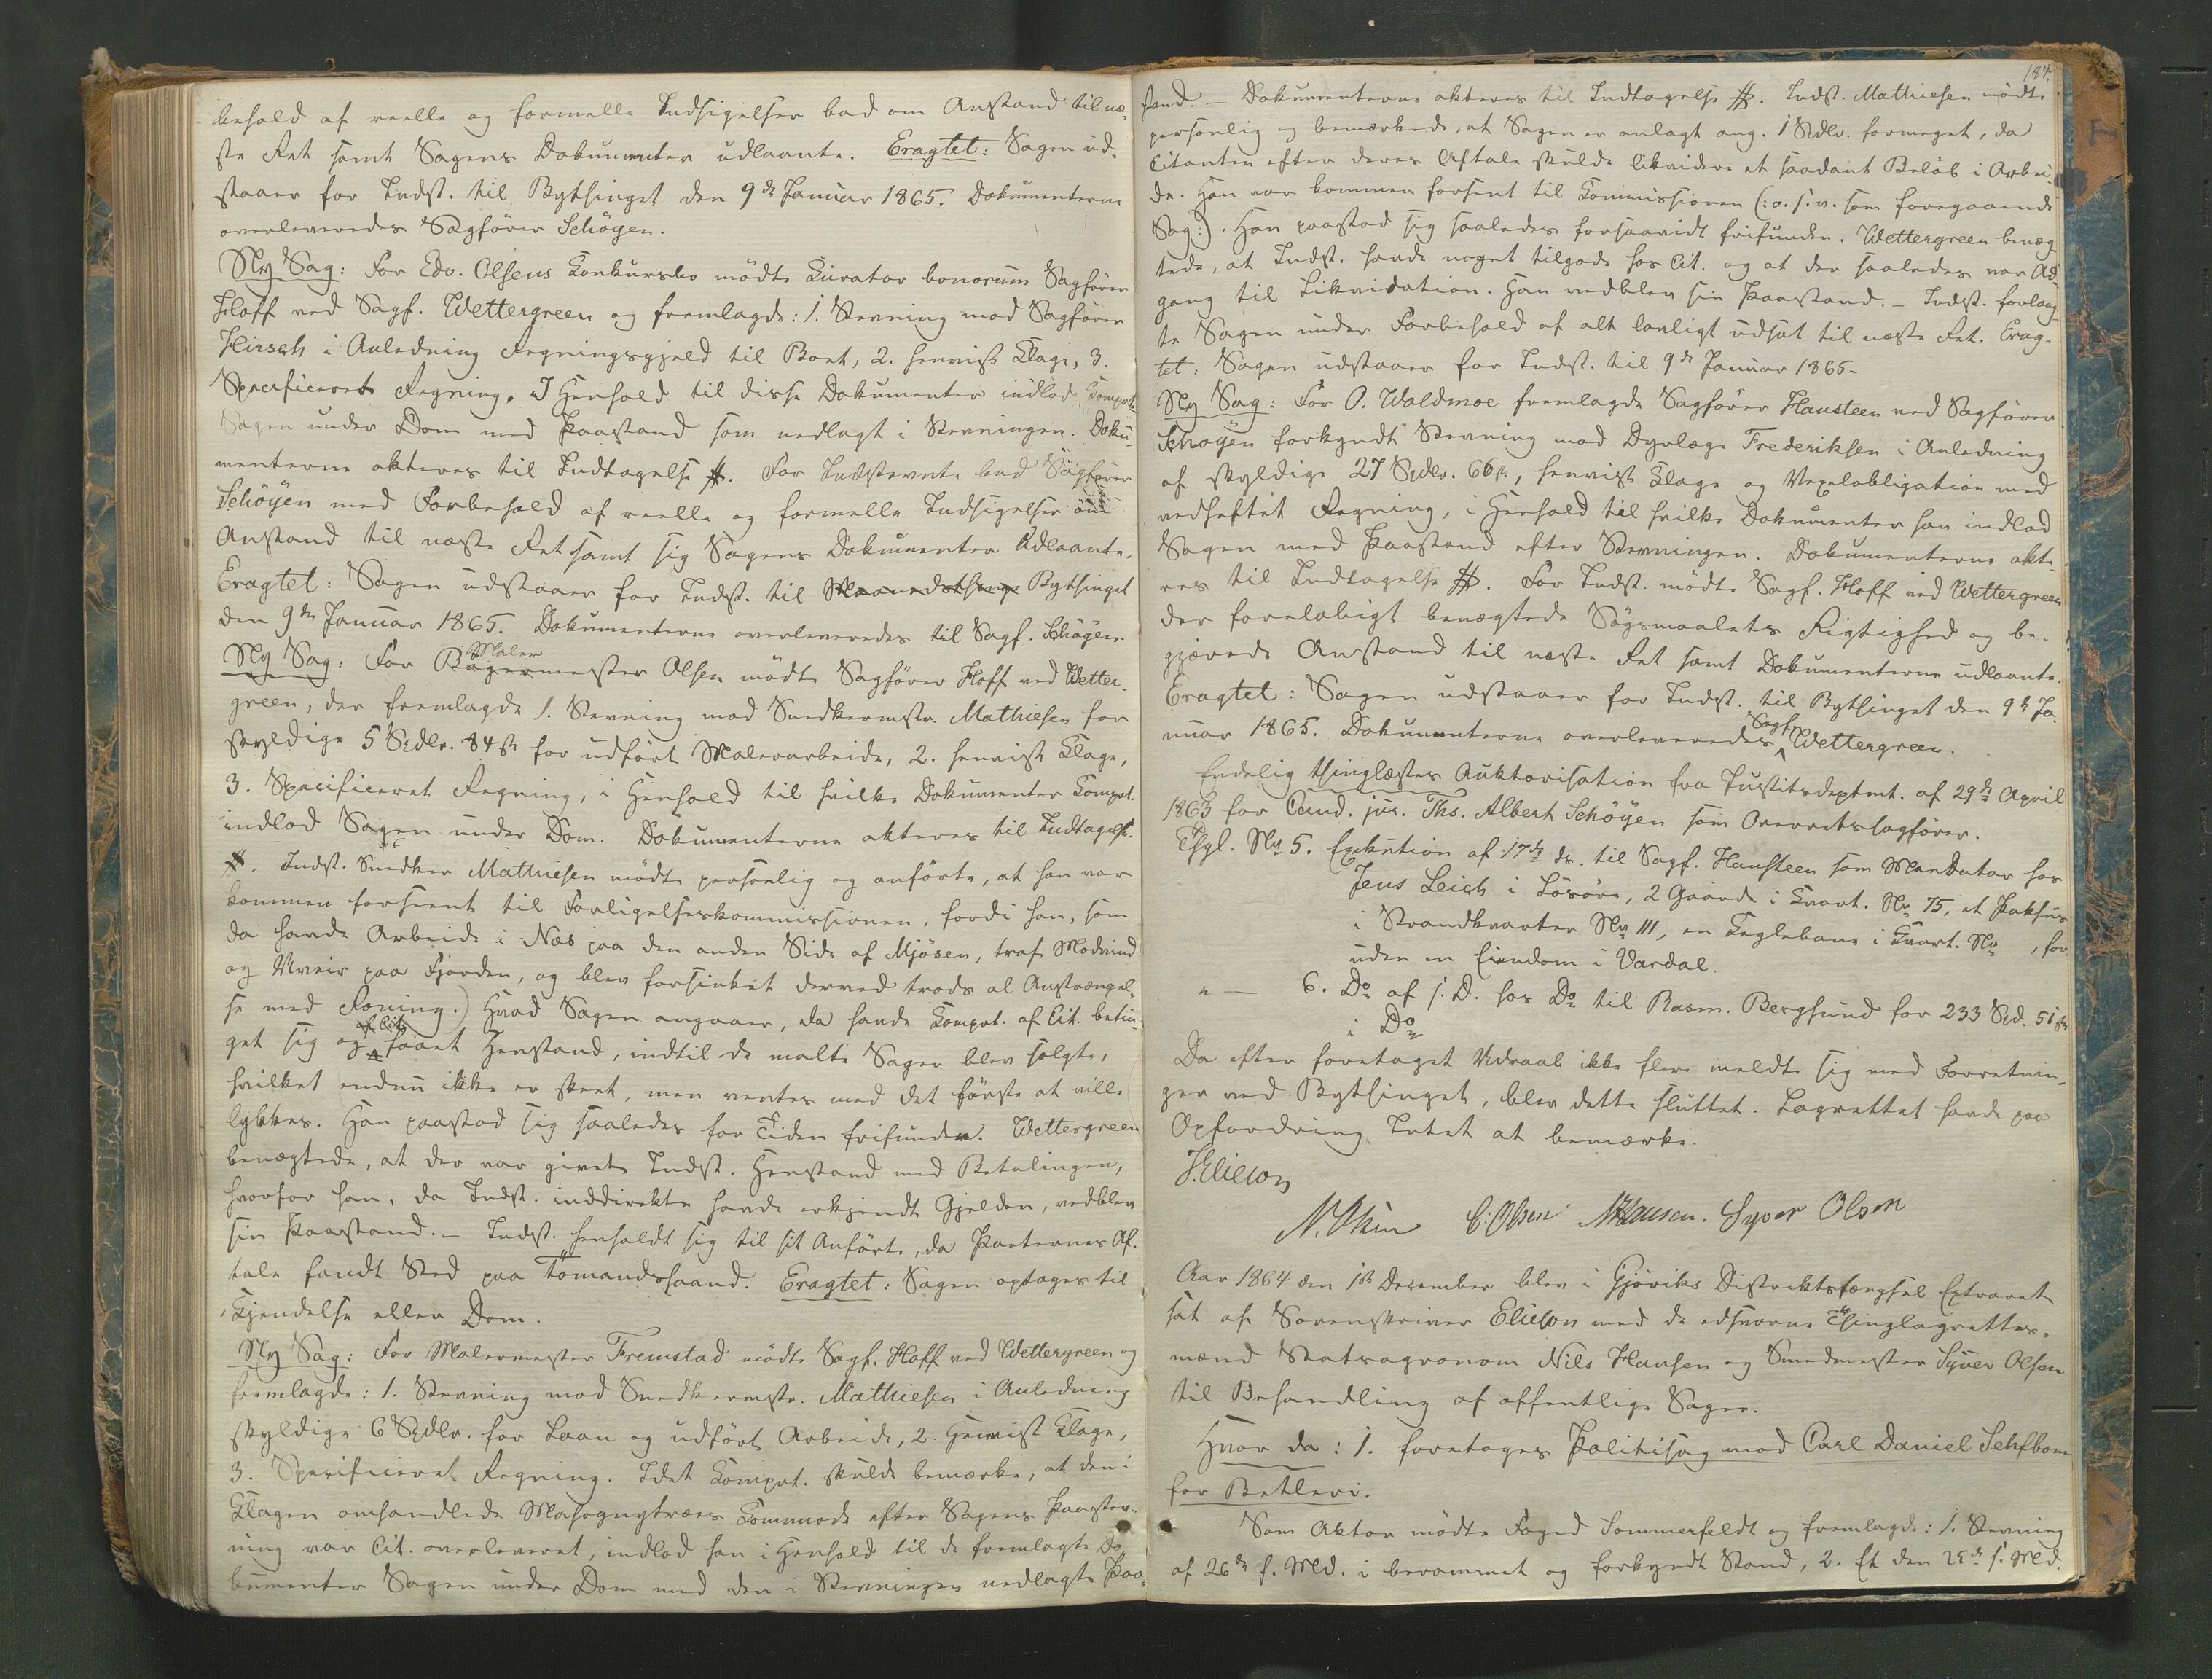 behold af reelle og formelle Indsigelser bad om Anstand til næ-
ste Ret samt Sagens Dokumenter udlaante. Eragtet: Sagen ud-
staaer for Indst. til Bythinget den 9de Januar 1865. Dokumenterne
overleveredes Sagfører Schöyen.
Ny Sag: For Edv. Olsens Konkursbo mödte Kurator bonorum Sagfører
Hoff ved Sagf. Wettergreen og fremlagde: 1. Stevning mod Sagfører
Hirsch i Anledning Regningsgjeld til Boet, 2. henvist Klage, 3.
Specificeret Regning. I Henhold til disse Dokumenter indlod Kompt.
Sagen under Dom med Paastand som nedlagt i Stevningen. Doku-
menterne akteres til Indtagelse #. For Indstevnte bad Sagfører
Schöyen med Forbehold af reelle og formelle Indsigelser om
Anstand til næste Ret samt sig Sagens Dokumenter udlaante.
Eragtet: Sagen udstaaer for Indst. til Maanedsthing Bythinget
den 9de Januar 1865. Dokumenterne overleveredes til Sagf. Schöyen.
Ny Sag: For Bagermester Maler Olsen mödte Sagfører Hoff ved Wetter-
green, der fremlagde 1. Stevning mod Snedkermstr. Mathiesen for
skyldige 5 Spdlr. 84 s for udfört Malerarbeide, 2. henvist Klage,
3. Specificeret Regning, i Henhold til hvilke Dokumenter Kompt.
indlod Sagen under Dom. Dokumenterne akteres til Indtagelse
#. Indst. Snedker Mathiesen mödte personlig og anförte, at han var
kommen forseent til Forligelseskommissionen, fordi han, som
da havde Arbeide i Næs paa den anden Side af Mjösen, traf Modvind
og Uveir paa Fjorden, og blev forsinket derved trods al Anstrængel-
se med Roning.) Hvad Sagen angaaer, da havde Kompt. af Cit. betin-
get sig og af Cit. faaet Henstand, indtil de malte Sager blev solgte,
hvilket endnu ikke er skeet, men ventes med det förste at ville
lykkes. Han paastod sig saaledes for Tiden frifunden. Wettergreen
benægtede, at der var givet Indst. Henstand med Betalingen,
hvorfor han, da Indst. inddirekte havde erkjendt Gjelden, vedblev
sin Paastand. - Indst. henholdt sig til sit Anförte, da Parternes Af-
tale fandt Sted paa Tomandshaand. Eragtet: Sagen optages til
Kjendelse eller Dom.
Ny Sag: For Malermester Fremstad mödte Sagf. Hoff ved Wettergreen og
fremlagde: 1. Stevning mod Snedkermstr. Mathiesen i Anledning
skyldige 6 Spdlr. for Laan og udfört Arbeide, 2. Henvist Klage,
3. Specificeret Regning. Idet Kompt. skulde bemærke, at den i
Klagen omhandlede Mahognytræes Kommode efter Sagens Paastev-
ning var Cit. overleveret, indlod han i Henhold til de fremlagte Do-
kumenter Sagen under Dom med den i Stevningen nedlagte Paa-
184.
stand. - Dokumenterne akteres til Indtagelse #. Indst. Mathiesen mödte
personlig og bemærkede, at Sagen er anlagt ang. 1 Spdlr. formeget, da
Citanten efter deres Aftale skulde likvidere et saadant Belöb i Arbei-
de. Han var kommen forsent til Kommissionen (:o: s. v. som foregaaende
Sag:). Han paastod sig saaledes forsaavidt frifunden. Wettergreen benæg-
tede, at Indst. havde noget tilgode hos Cit. og at der saaledes var Ad-
gang til Likvidation. Han vedblev sin Paastand. - Indst. forlang-
te Sagen under Forbehold af alt lovligt udsat til næste Ret. Erag-
tet: Sagen udstaaer for Indst. til 9de Januar 1865.
Ny Sag: For O. Waldmoe fremlagde Sagfører Hansteen ved Sagfører
Schöyen forkyndt Stevning mod Dyrlæge Frederiksen i Anledning
af skyldige 27 Spdlr. 66 s, henvist Klage og Vexelobligation med
vedheftet Regning, i Henhold til hvilke Dokumenter han indlod
Sagen med Paastand efter Stevningen. Dokumenterne akte-
res til Indtagelse #. For Indst. mödte Sagf. Hoff ved Wettergreen
der forelöbigt benægtede Sögsmaalets Rigtighed og be-
gjærede Anstand til næste Ret samt Dokumenterne udlaante.
Eragtet: Sagen udstaaer for Indst. til Bythinget den 9de Ja-
nuar 1865. Dokumenterne overleveredes Sagf. Wettergreen.
Endelig thinglæstes Auktorisation fra Justitsdeptmt. af 29de April
1863 for Cand. jur. Ths. Albert Schöyen som Overretssagfører.
Thgl. No 5. Exekution af 17de ds. til Sagf. Hansteen som Mandatar hos
Jens Leich i Lösöre, 2 Gaarde i Kvart. No 75, et Pakhus
i Strandkvarter No 111, en Keglebane i Kvart. No , for-
uden en Eiendom i Vardal.
" — 6. Do af s. D. hos Do til Rasm. Berghund for 233 Spd. 51 s
i Do
Da efter foretaget Udraab ikke flere meldte sig med Forretnin-
ger ved Bythinget, blev dette sluttet. Lagrettet havde paa
Opfordring Intet at bemærke.
J. Elieson
C. Olsen N Hansen. Syver Olsen
Aar 1864 den 1ste December blev i Gjöviks Distriktsfængsel Extraret
sat af Sorenskriver Elieson med de edsvorne Thinglagrettes-
mænd Statsagronom Nils Hansen og Smedmester Syver Olsen
til Behandling af offentlige Sager.
Hvor da: 1. foretages Politisag mod Carl Daniel
for Betleri.
Som Aktor mödte Foged Sommerfeldt og fremlagde: 1. Stevning
af 26de f. Md. i berammet og forkyndt Stand, 2. Et den 25de f. Md.